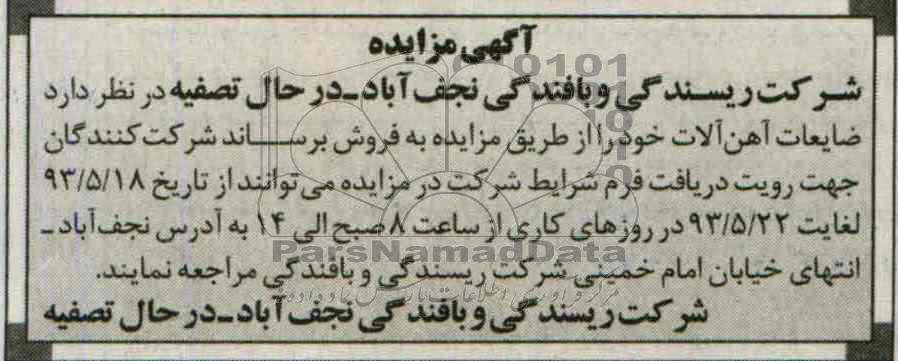 آگهی مزایده
شرکت ریسندگی و بافندگی نجف آباد ـ در حال تصفیه در نظر دارد
ضایعات آهن آلات خود را از طریق مزایده به فروش برساند شرکت کنندگان
جهت رویت دریافت فرم شرایط شرکت در مزایده می توانند از تاریخ ۹۳/۵/۱۸
لغایت ۹۳/۵/۲۲ در روزهای کاری از ساعت ۸ صبح الی ۱۴ به آدرس نجف آباد ـ
ParsNamadData
انتهای خیابان امام خمینی شرکت ریسندگی و بافندگی مراجعه نمایند.
شرکت ریسندگی و بافندگی نجف آباد ـ در حال تصفیه